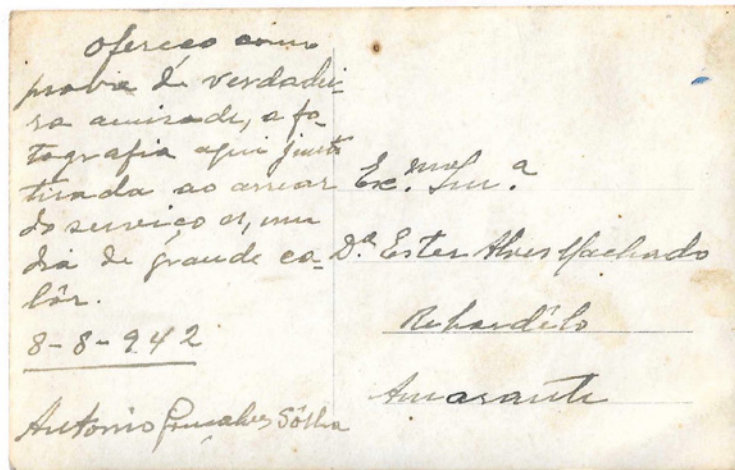 Ofereço como
prova de verdadei-
ra amizade, a fo-
tografia aqui junta
tirada ao arrear
do serviço e, num
dia de grande ca-
lôr.
8-8-942
Antonio Gonsalves
Exc.ma Snr.a
D.a Ester Alves Machado
Rebordêlo
Amarante